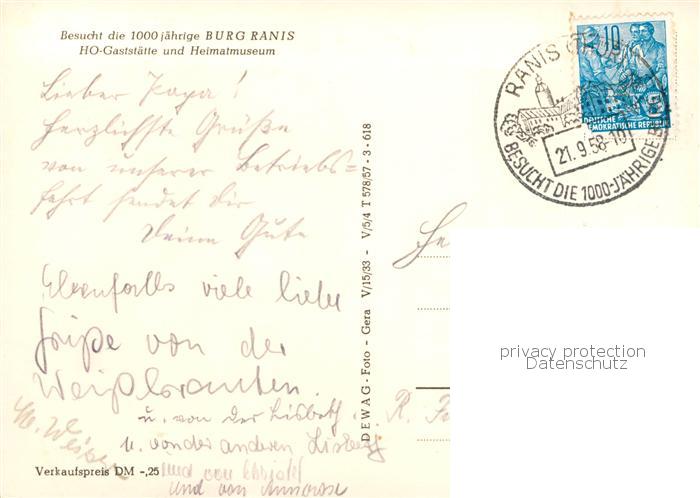 Besucht die 1000 jährige BURG RANIS
HO-Gaststätte und Heimatmuseum
Lieber Papa!
Herzlichste Grüße
von unserer Betriebs=
fahrt sendet Dir
Deine Gute
Ebenfalls viele liebe
Grüße von der
u. von der Lisbeth.
u. von der anderen Lisbeth
und von
und von
Verkaufspreis DM -,25
DEWAG-Foto - Gera V/15/33 - V/5/4 T 578/57 - 3 - 618
RANIS
BESUCHT DIE 1000-JÄHRIGE
21.9.58-10
10
DEUTSCHE
DEMOKRATISCHE REPUBLIK
5
R.
privacy protection
Datenschutz